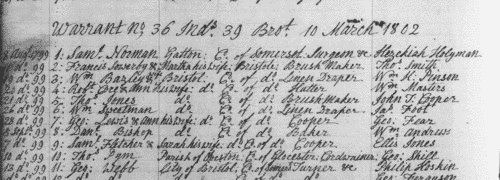 Warrant No. 36 Ind. 39 Brot. 10 March 1802
99 1: Saml. Norman Yatton Co. of Somerset Surgeon & Hezekiah Holyman
do. 99 2: Francis & Martha his wife Bristol Brush Maker Thos. Smith
do. 99 3: Wm. Bristol Co. of do. Linen Draper Wm. K. Pinson
do. 99 4: Robt. & Ann his wife do. Co. of do. Hatter Wm. Masters
do. 99 5: Thos. Jones do. Co. of do. Brush Maker John T. Cooper
do. 99 6: Wm. Sweetman do. Co. of do. Linen Draper Jas. Foot
do. 99 7: Geo: Lewis & Ann his wife do. Co. of do. Cooper Geo: Fear
99 8: Danl. Bishop do. Co. of do. Baker Wm. Andrews
7 do. 99 9: Saml. Fletcher & Sarah his wife do. Co. of do. Cooper Ellis Jones
10 do. 99 10: Thos. Pym Parish of Co. of Glocester Cordwainer Geo: Shill
13 do. 99 11: Geo: Webb City of Bristol, Co. of Turner &c. Philip Hoskin
Geo: Ferguson